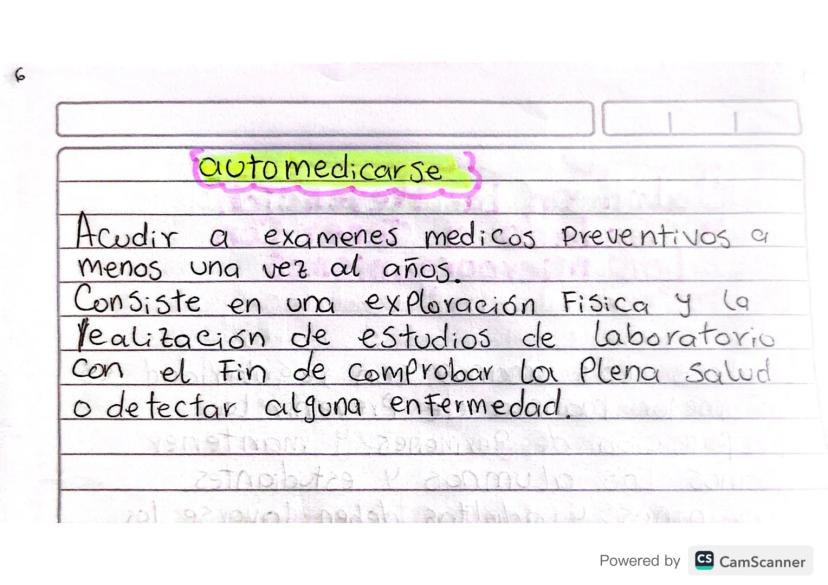 6
automedicarse
Acudir a examenes medicos Preventivos a
menos una vez al años.
Consiste en una exploración Fisica y la
realización de estudios de laboratorio
con el Fin de comprobar la Plena Salud
o detectar alguna enfermedad.
Powered by CS CamScanner